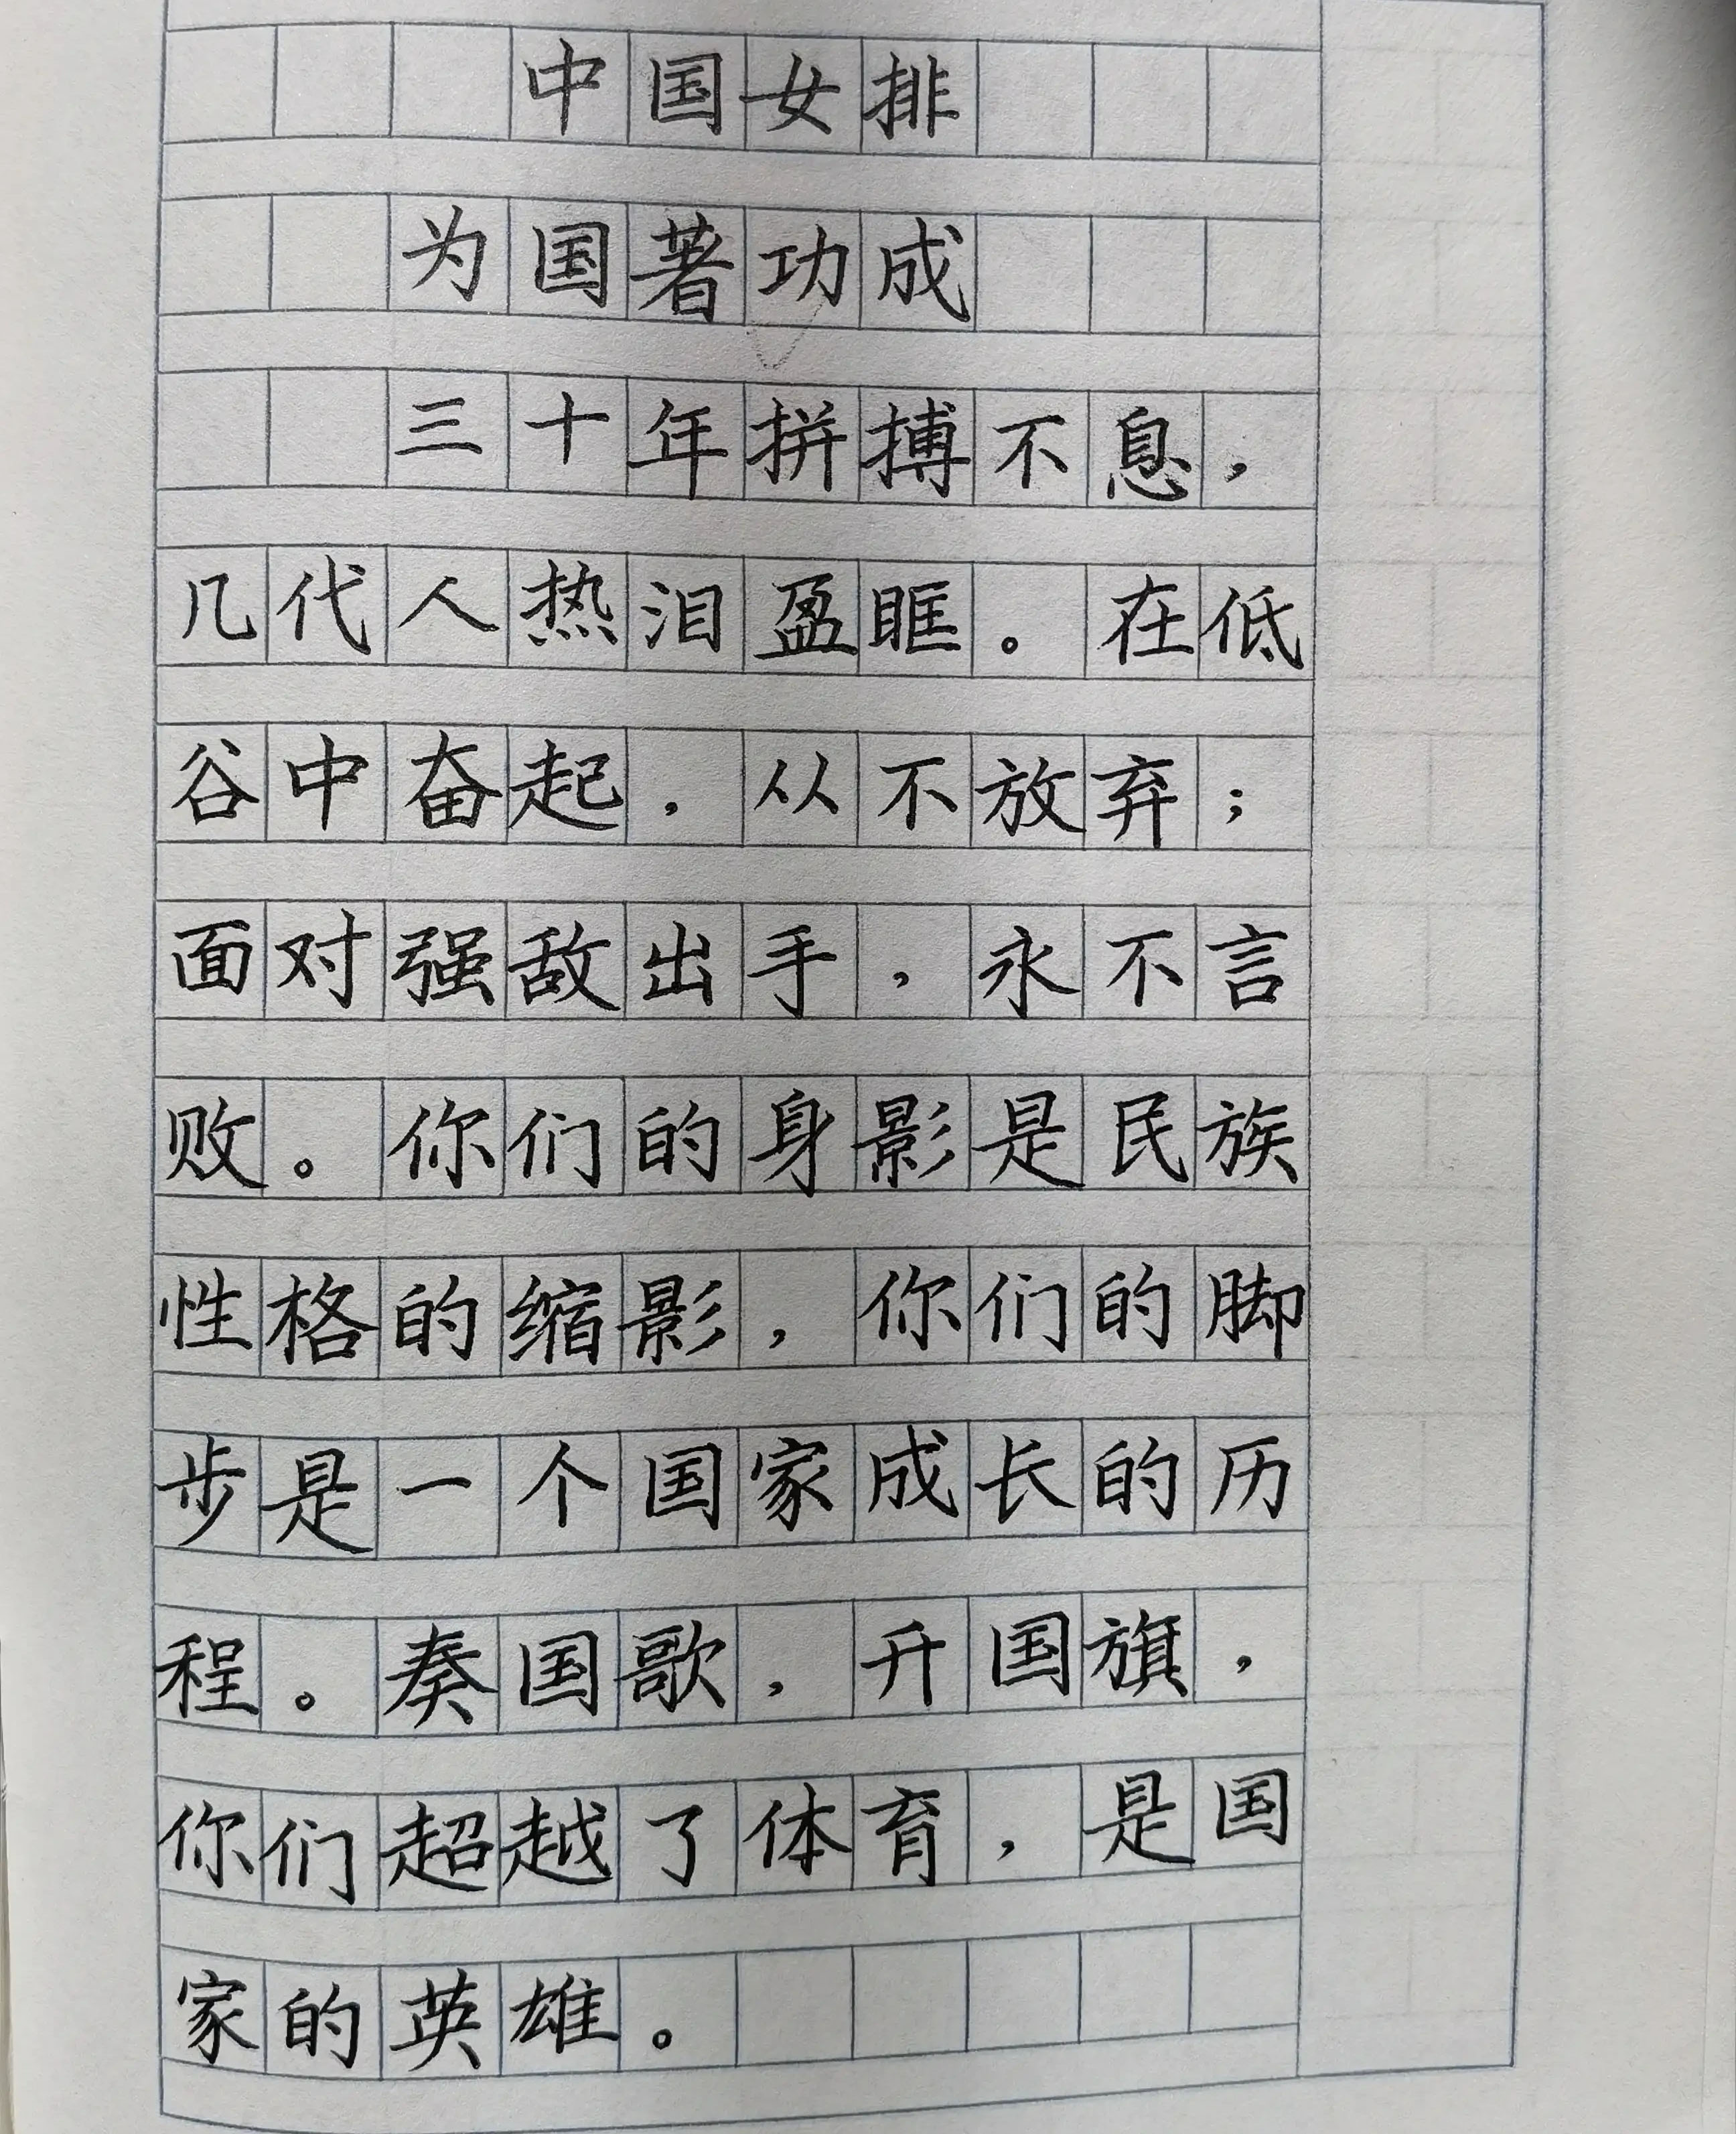 中国女排
为国著功成
三十年拼搏不息，
几代人热泪盈眶。在低
谷中奋起，从不放弃；
面对强敌出手，永不言
败。你们的身影是民族
性格的缩影，你们的脚
步是一个国家成长的历
程。奏国歌，升国旗，
你们超越了体育，是国
家的英雄。